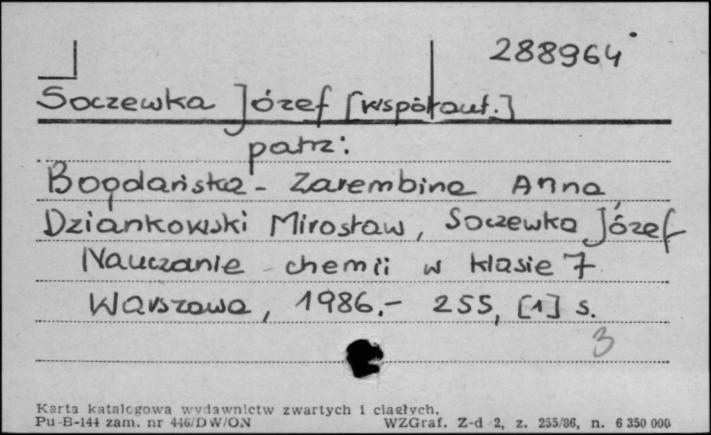 288964
Soczewka Józef [współaut.]
patrz:
Bogdańska-Zarembina Anna,
Dziankowski Mirosław, Soczewka Józef
Nauczanie chemii w klasie 7
Warszawa, 1986.- 255, [1] s.
3
Karta katalogowa wydawnictw zwartych i ciągłych.
Pu-B-144 zam. nr 446/DW/ON WZGraf. Z-d 2, z. 255/86, n. 6 350 000